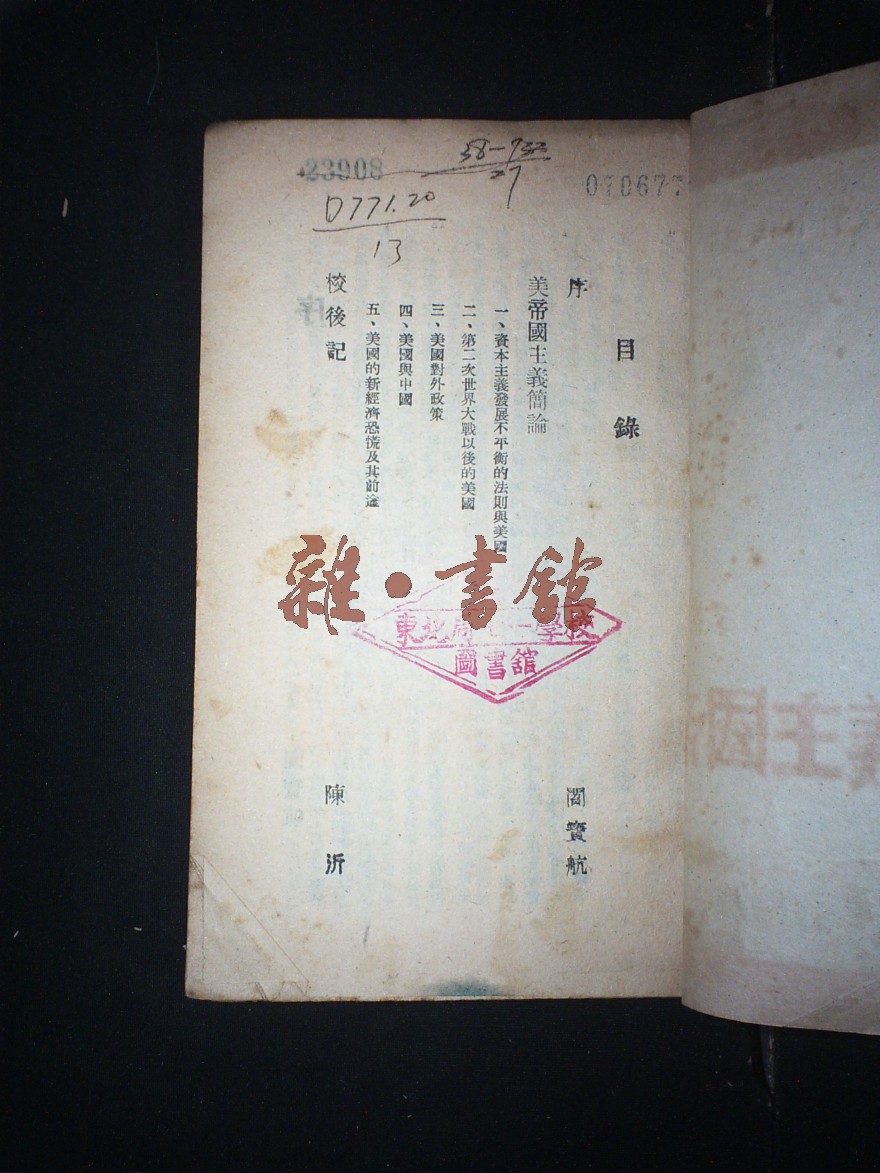 23908
38—933
27
070677
D771.20
13
目錄
序 閻寶航
美帝國主義簡論
一、資本主義發展不平衡的法則與美國
二、第二次世界大戰以後的美國
三、美國對外政策
四、美國與中國
五、美國的新經濟恐慌及其前途
校後記 陳沂
雜·書館
東北局 一學校
圖書館
序
主國